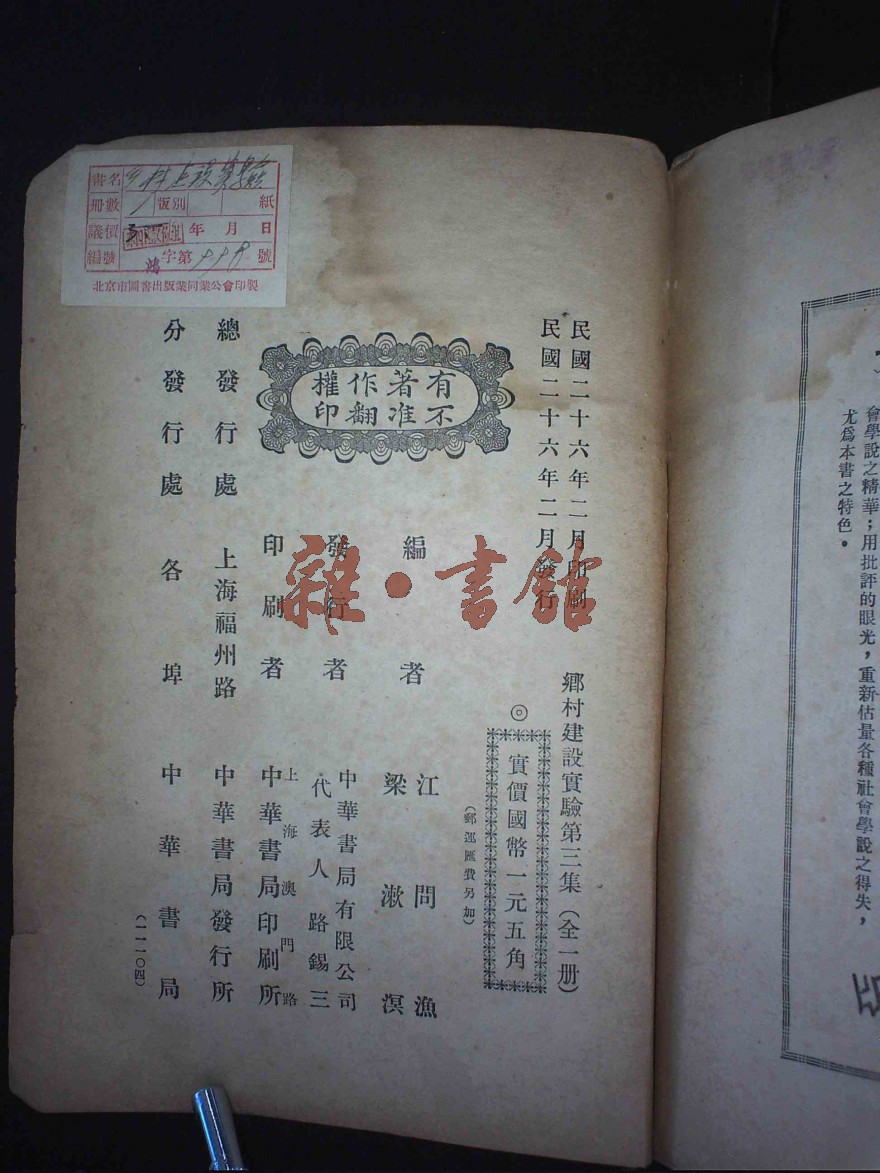 書名 乡村建设實驗
冊數 1 版別 紙
議價 年 月 日
編號 鴻字第 號
北京市圖書出版業同業公會印製
民國二十六年二月印刷
民國二十六年二月發行
鄉村建設實驗第三集（全一册）
◎實價國幣一元五角
（郵運匯費另加）
有著作權
不准翻印
編者 江問漁
梁漱溟
發行者 中華書局有限公司
代表人 路錫三
印刷者 上海澳門路
中華書局印刷所
總發行處 上海福州路 中華書局發行所
分發行處 各埠 中華書局
（一一一〇四）
雜·書館
會學說之精華；用批評的眼光，重新估量各種社會學說之得失，
尤爲本書之特色。
版